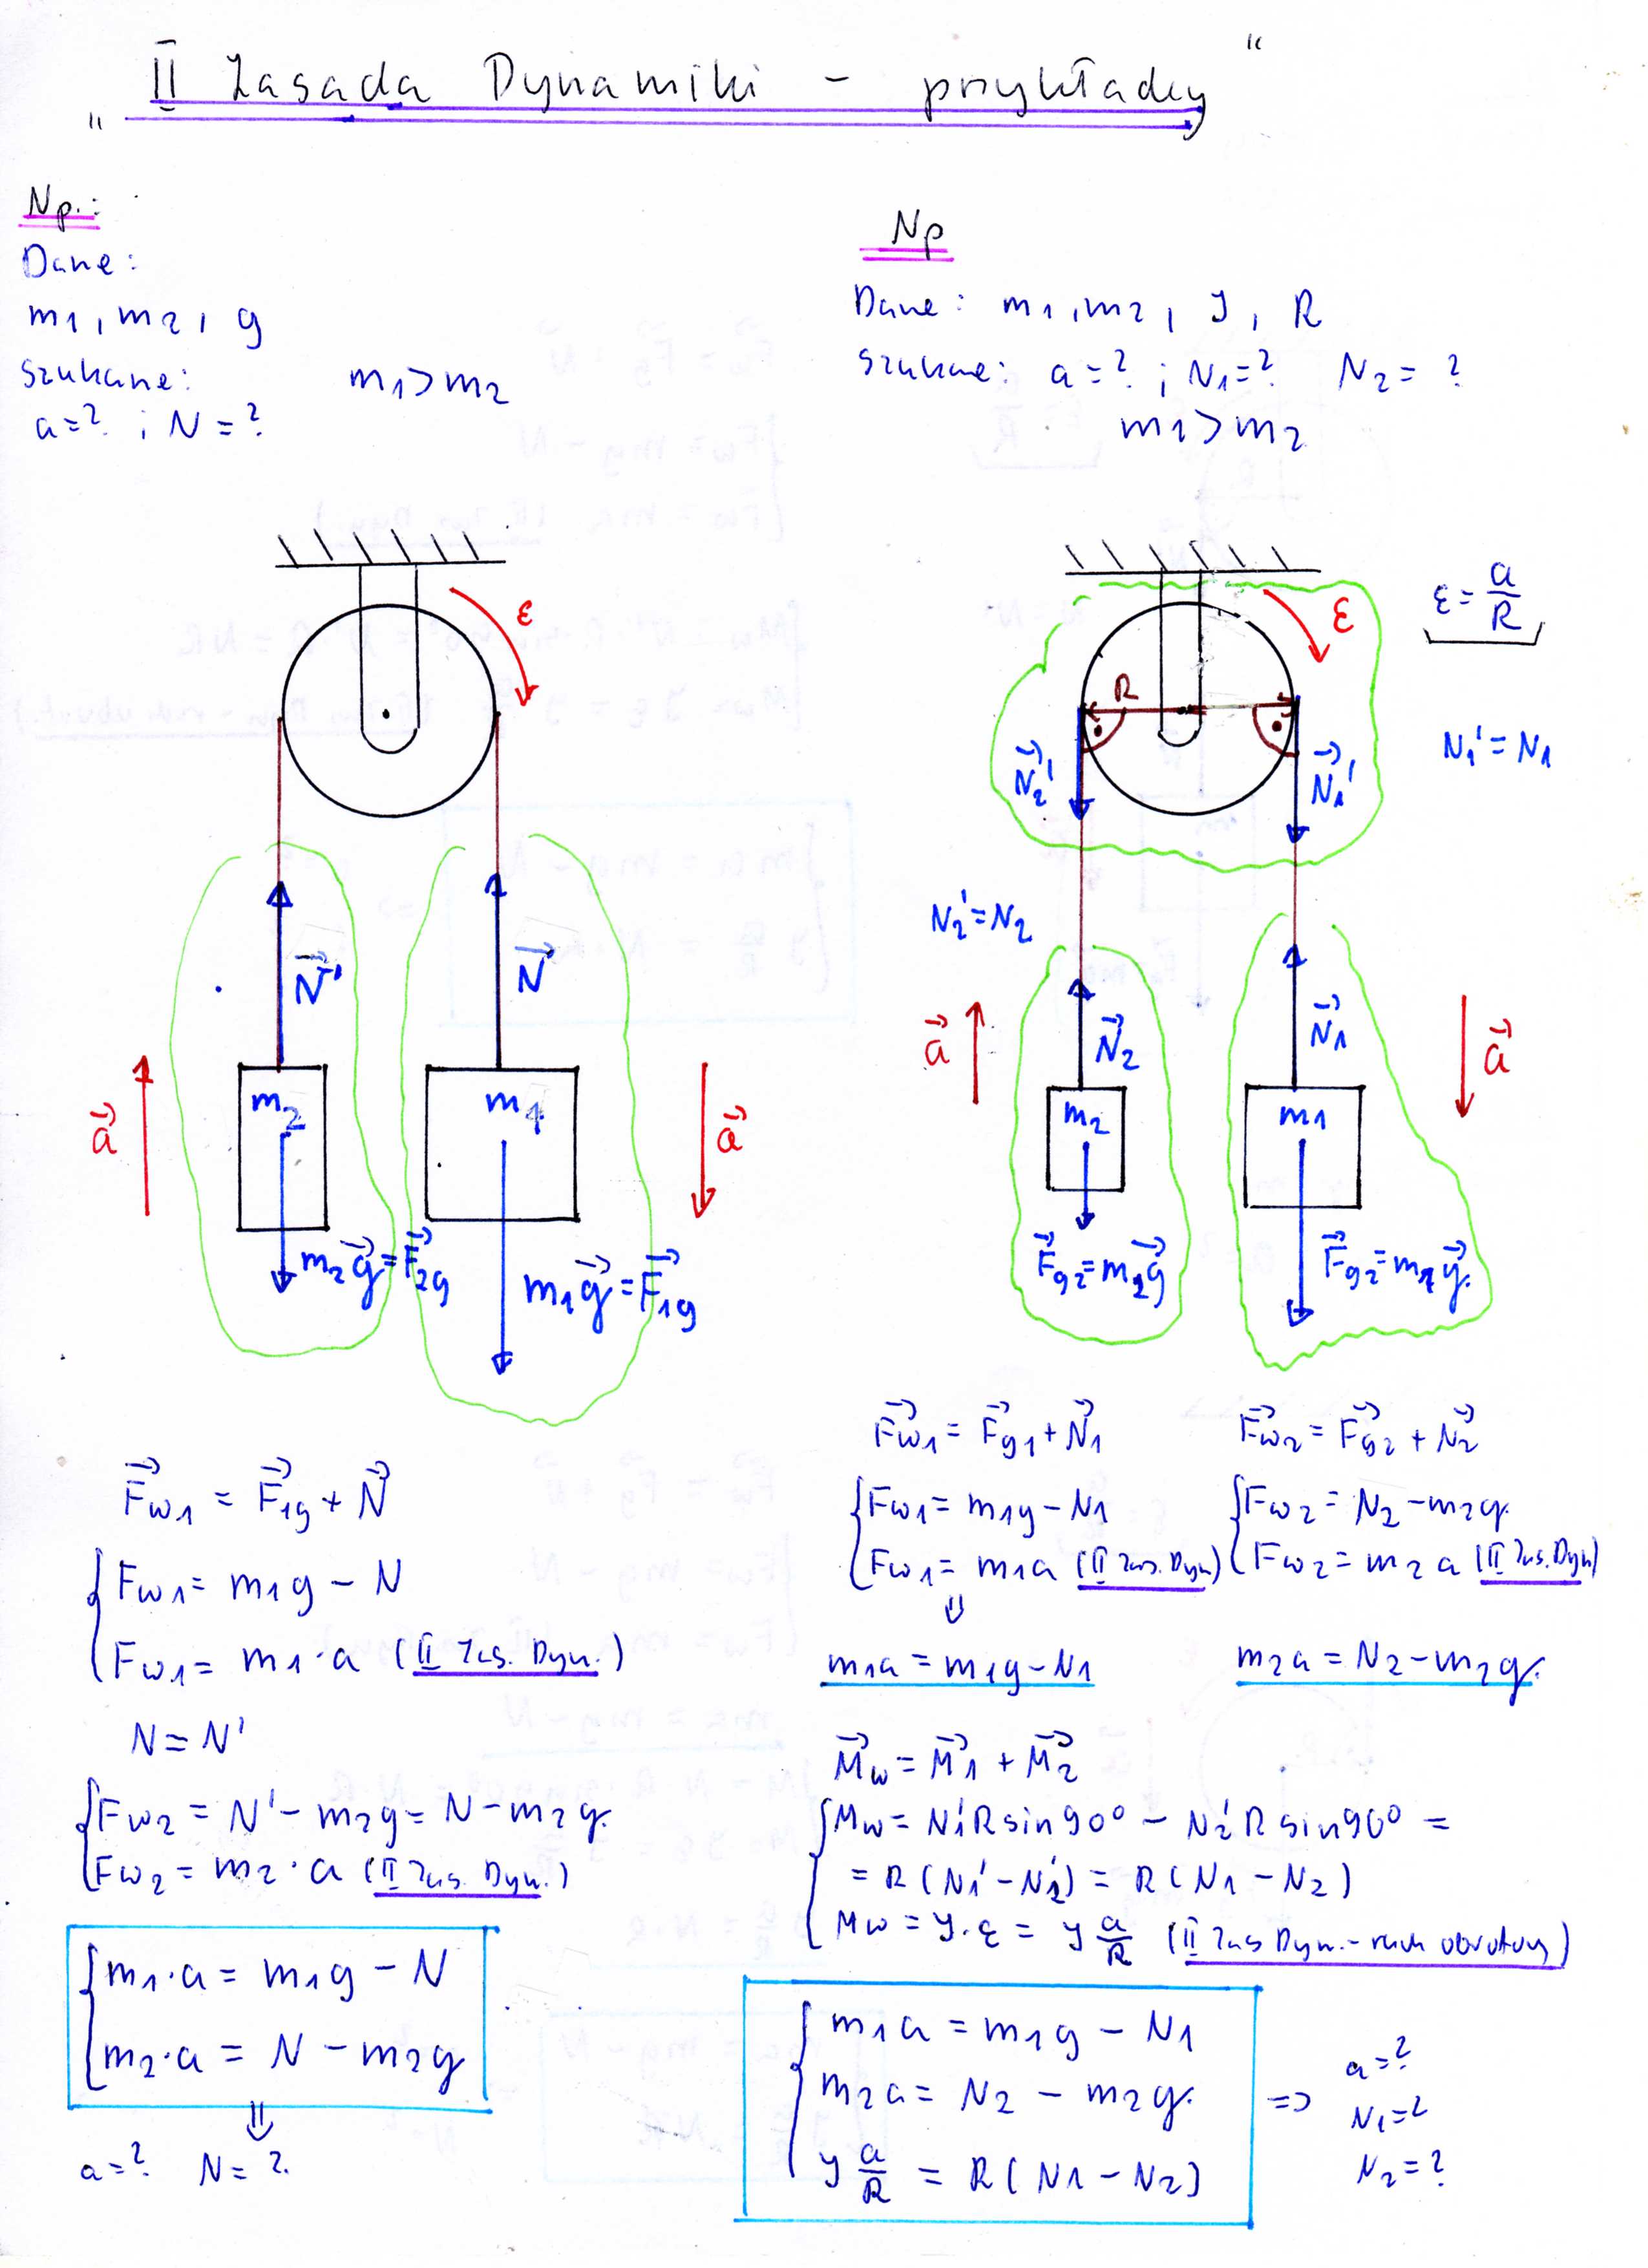 „ II Zasada Dynamiki – przykłady “
Np.:
Dane:
m1, m2, g
Szukane:
m1>m2
a=? ; N=?
Np
Dane: m1, m2, J, R
Szukane: a=? ; N1=? N2=?
m1>m2
ε
N'
N
a
m2
m1
a
m2g=F2g
m1g=F1g
Fw1 = F1g + N
Fw1 = m1g – N
Fw1 = m1·a (II Zas. Dyn.)
N=N'
Fw2 = N' – m2g = N – m2g.
Fw2 = m2·a (II Zas. Dyn.)
m1·a = m1g – N
m2·a = N – m2g
⇓
a=? N=?
ε
ε = a/R
R
N2'
N1'
N1' = N1
N2' = N2
a
N2
N1
a
m2
m1
Fg2 = m2g
Fg2 = m1g.
Fw1 = Fg1 + N1
Fw2 = Fg2 + N2
Fw1 = m1g – N1
Fw2 = N2 – m2g.
Fw1 = m1a (II Zas. Dyn)
Fw2 = m2 a (II Zas. Dyn)
⇓
m1a = m1g – N1
m2a = N2 – m2g.
Mw = M1 + M2
Mw = N1'R sin90° – N2'R sin90° =
= R(N1' – N2') = R(N1 – N2)
Mw = J·ε = J a/R (II Zas Dyn. – ruch obrotowy)
m1a = m1g – N1
m2a = N2 – m2g.
J a/R = R(N1 – N2)
=> a=?
N1=?
N2=?